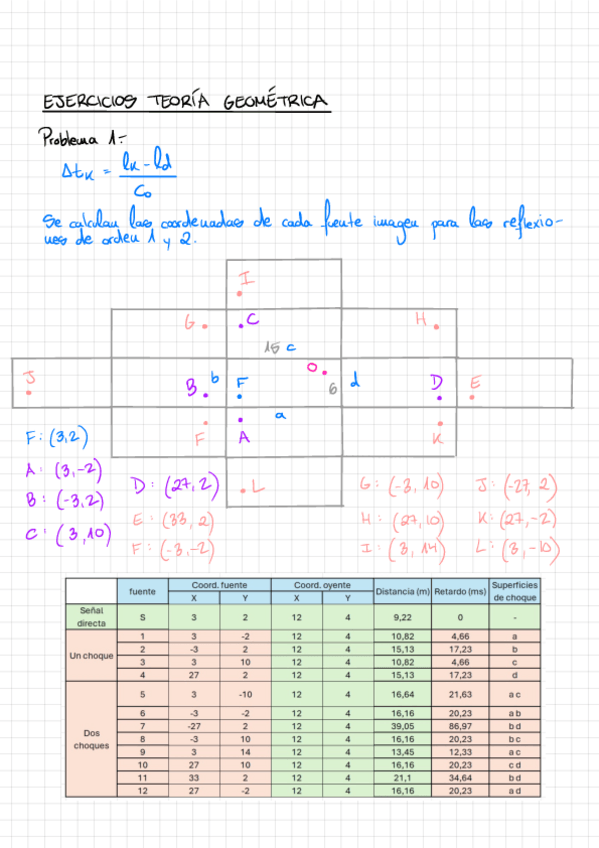 EJERCICIOS TEORÍA GEOMÉTRICA
Problema 1:-
Δtk = (lk - ld) / C0
Se calculan las coordenadas de cada fuente imagen para las reflexio-
nes de orden 1 y 2.
I
G C H
15 c
J B b F O 6 d D E
a
F A K
L
F: (3,2)
A: (3,-2)
B: (-3,2)
C: (3,10)
D: (27,2)
E: (33,2)
F: (-3,-2)
G: (-3,10)
H: (27,10)
I: (3,14)
J: (-27,2)
K: (27,-2)
L: (3,-10)
fuente Coord. fuente Coord. oyente Distancia (m) Retardo (ms) Superficies de choque
X Y X Y
Señal directa S 3 2 12 4 9,22 0 -
Un choque
1 3 -2 12 4 10,82 4,66 a
2 -3 2 12 4 15,13 17,23 b
3 3 10 12 4 10,82 4,66 c
4 27 2 12 4 15,13 17,23 d
Dos choques
5 3 -10 12 4 16,64 21,63 a c
6 -3 -2 12 4 16,16 20,23 a b
7 -27 2 12 4 39,05 86,97 b d
8 -3 10 12 4 16,16 20,23 b c
9 3 14 12 4 13,45 12,33 a c
10 27 10 12 4 16,16 20,23 c d
11 33 2 12 4 21,1 34,64 b d
12 27 -2 12 4 16,16 20,23 a d